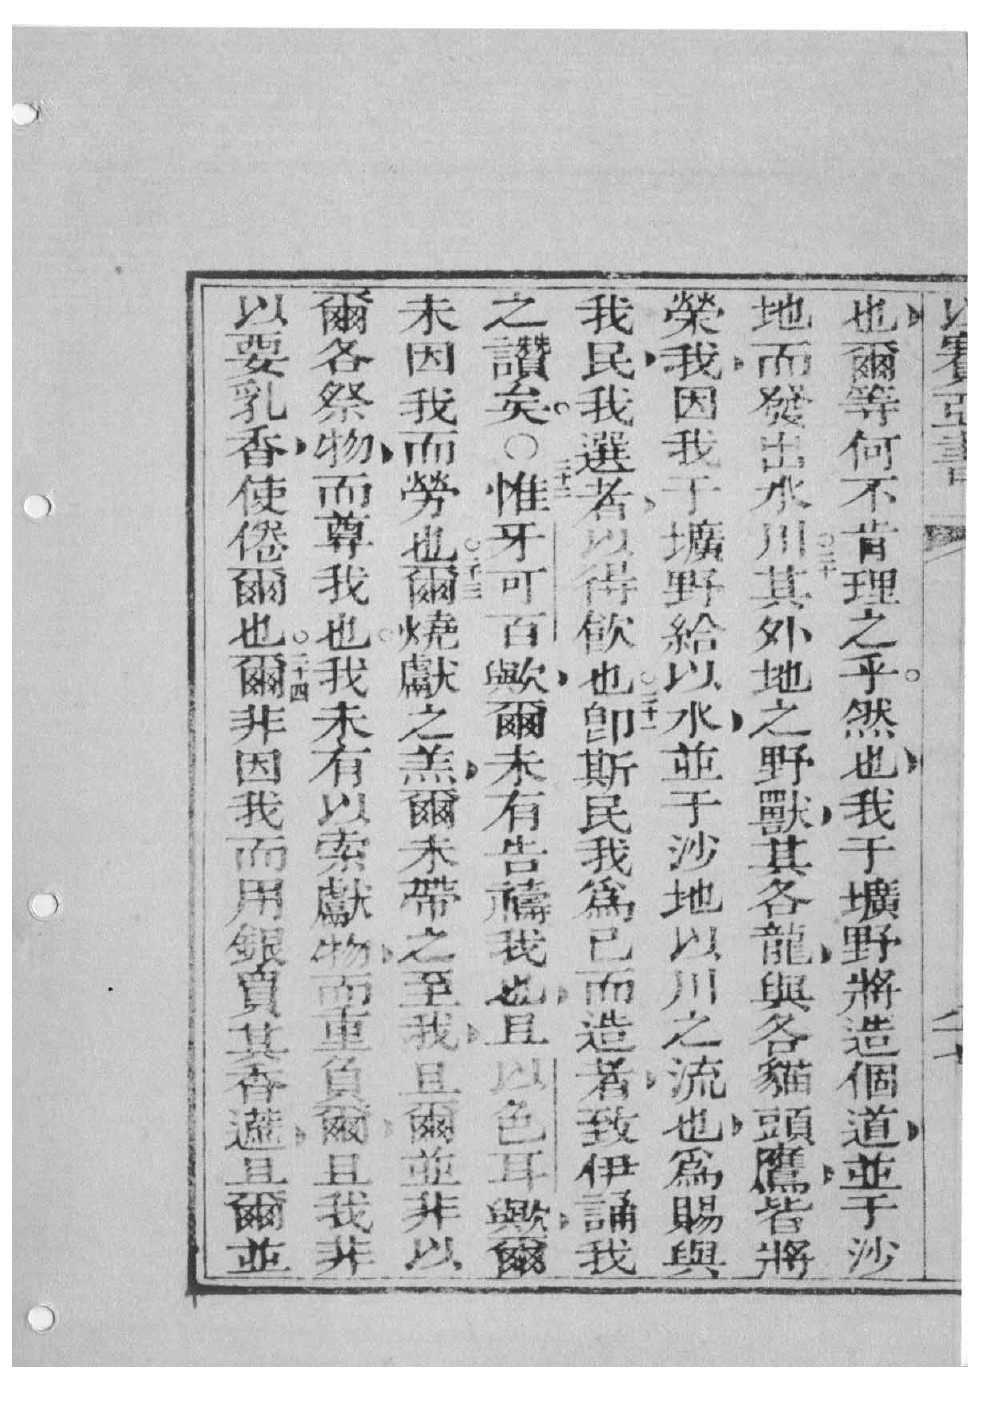 以賽亞書
也爾等何不肯理之乎。然也我于壙野將造個道並于沙
地而發出水川○二十其外地之野獸其各龍與各貓頭鷹皆將
榮我因我于壙野給以水並于沙地以川之流也為賜與
我民我選者以得飲也○二十一卽斯民我為己而造者致伊誦我
之讚矣。○二十二惟牙可百歟爾未有告禱我也且以色耳歟爾
未因我而勞也○二十三爾燒獻之羔爾未帶之至我且爾並非以
爾各祭物而尊我也。我未有以索獻物而重負爾且我非
以要乳香使倦爾也○二十四爾非因我而用銀買其香薳且爾並